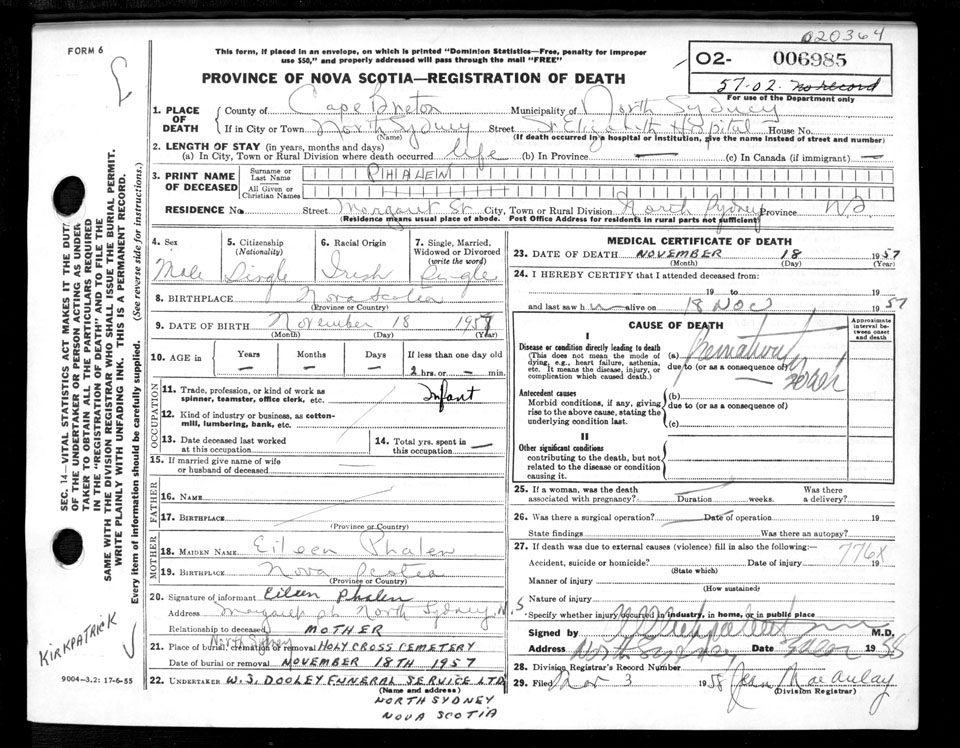 FORM 6
020364
This form, if placed in an envelope, on which is printed "Dominion Statistics—Free, penalty for improper
use $50," and properly addressed will pass through the mail "FREE"
02- 006985
57-02. no record
For use of the Department only
PROVINCE OF NOVA SCOTIA—REGISTRATION OF DEATH
1. PLACE OF DEATH
County of Cape Breton Municipality of North Sydney
If in City or Town North Sydney Street St Elizabeth Hospital House No.
(Name) (If death occurred in a hospital or institution, give the name instead of street and number)
2. LENGTH OF STAY (in years, months and days)
(a) In City, Town or Rural Division where death occurred life (b) In Province — (c) In Canada (if immigrant) —
3. PRINT NAME OF DECEASED
Surname or Last Name PHALEN
All Given or Christian Names
RESIDENCE No. Street Margaret St. City, Town or Rural Division North Sydney Province NS
(Residence means usual place of abode. Post Office Address for residents in rural parts not sufficient)
4. Sex Male
5. Citizenship (Nationality) Single
6. Racial Origin Irish
7. Single, Married, Widowed or Divorced (write the word) Single
8. BIRTHPLACE Nova Scotia
(Province or Country)
9. DATE OF BIRTH November 18 1957
(Month) (Day) (Year)
10. AGE in Years — Months — Days — If less than one day old 2 hrs. or — min.
OCCUPATION
11. Trade, profession, or kind of work as spinner, teamster, office clerk, etc. Infant
12. Kind of industry or business, as cotton-mill, lumbering, bank, etc.
13. Date deceased last worked at this occupation
14. Total yrs. spent in this occupation —
15. If married give name of wife or husband of deceased
FATHER
16. NAME
17. BIRTHPLACE
(Province or Country)
MOTHER
18. MAIDEN NAME Eileen Phalen
19. BIRTHPLACE Nova Scotia
(Province or Country)
20. Signature of informant Eileen Phalen
Address Margaret St North Sydney N.S
Relationship to deceased MOTHER
21. Place of burial, cremation or removal North Sydney HOLY CROSS CEMETERY
Date of burial or removal NOVEMBER 18TH 1957
22. UNDERTAKER W.J. DOOLEY FUNERAL SERVICE LTD
(Name and address)
NORTH SYDNEY
NOVA SCOTIA
MEDICAL CERTIFICATE OF DEATH
23. DATE OF DEATH NOVEMBER 18 1957
(Month) (Day) (Year)
24. I HEREBY CERTIFY that I attended deceased from:
19 to 19
and last saw h alive on 18 Nov 1957
CAUSE OF DEATH
Approximate interval between onset and death
I
Disease or condition directly leading to death
(This does not mean the mode of dying, e.g., heart failure, asthenia, etc. It means the disease, injury, or complication which caused death.)
(a)
due to (or as a consequence of)
Antecedent causes
Morbid conditions, if any, giving rise to the above cause, stating the underlying condition last.
(b)
due to (or as a consequence of)
(c)
II
Other significant conditions
contributing to the death, but not related to the disease or condition causing it.
25. If a woman, was the death associated with pregnancy? Duration weeks. Was there a delivery?
26. Was there a surgical operation? Date of operation 19
State findings Was there an autopsy?
27. If death was due to external causes (violence) fill in also the following:— 776X
Accident, suicide or homicide? Date of injury 19
(State which)
Manner of injury
(How sustained)
Nature of injury
Specify whether injury occurred in industry, in home, or in public place
Signed by M.D.
Address North Sydney Date 1958
28. Division Registrar's Record Number
29. Filed Mar 3 1958 Jean MacAulay
(Division Registrar)
SEC. 14—VITAL STATISTICS ACT MAKES IT THE DUTY
OF THE UNDERTAKER OR PERSON ACTING AS UNDERTAKER TO OBTAIN ALL THE PARTICULARS REQUIRED
IN THE "REGISTRATION OF DEATH" AND TO FILE THE
SAME WITH THE DIVISION REGISTRAR WHO SHALL ISSUE THE BURIAL PERMIT.
WRITE PLAINLY WITH UNFADING INK. THIS IS A PERMANENT RECORD.
Every item of information should be carefully supplied. (See reverse side for instructions.)
KIRKPATRICK
9004-3.2: 17-6-55